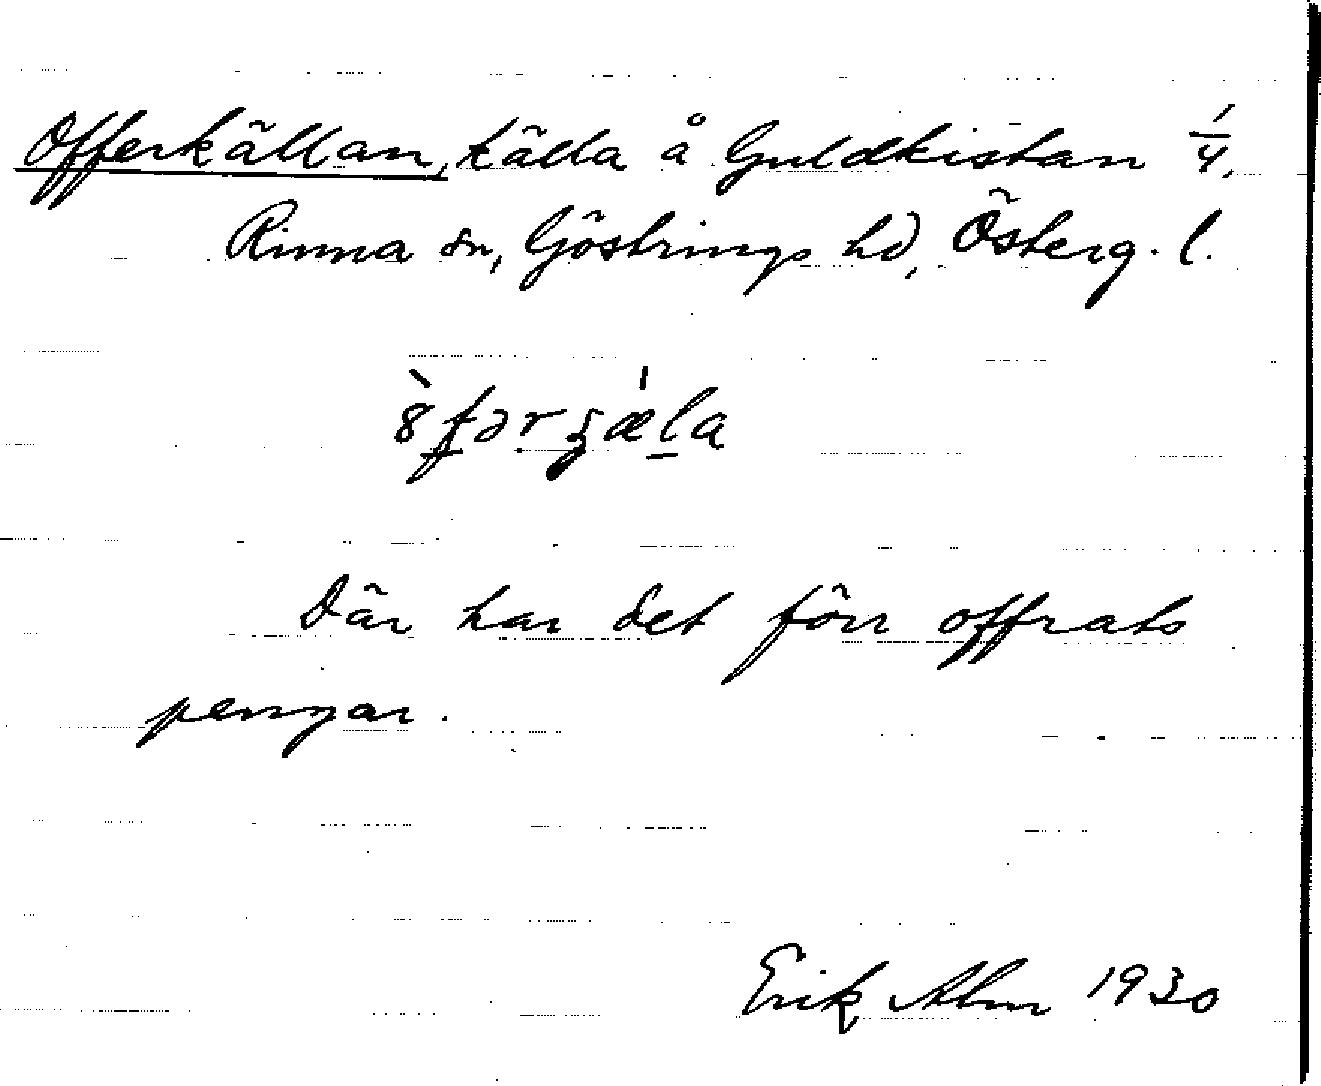 Offerkällan, källa å Guldkistan 1/4,
Rinna sn, Göstrings hd, Österg. l.
Där har det förr offrats
pengar.
Erik Alm 1930